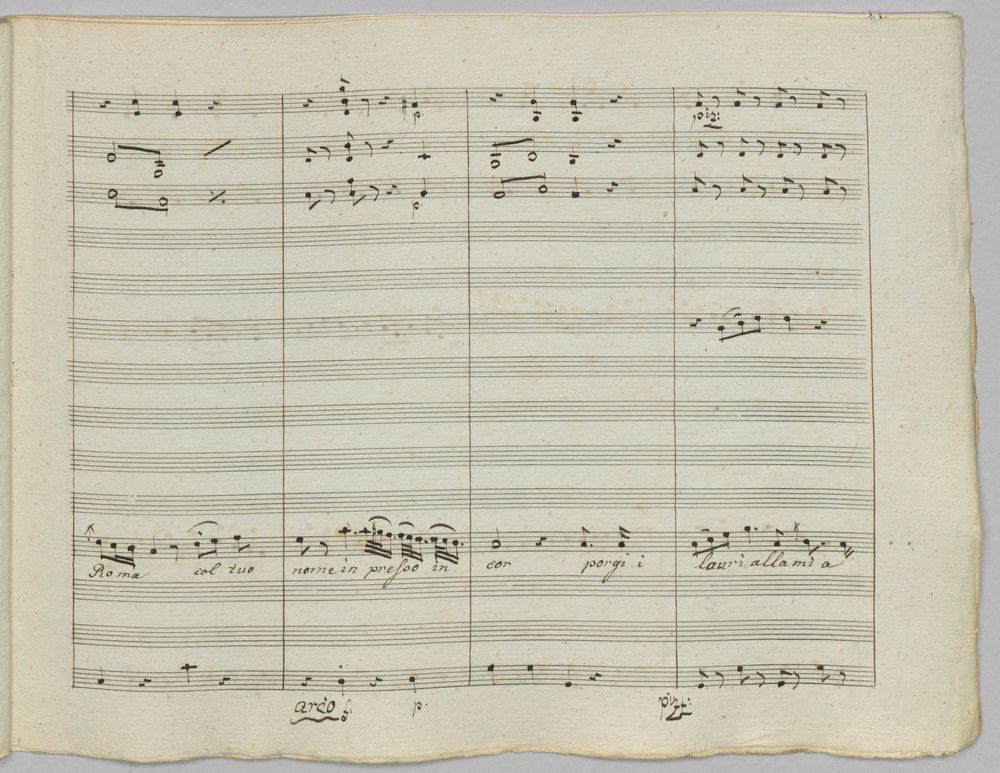 p.
p.
piz:
Roma col tuo nome in presso in cor porgi i lauri alla mi a
arco f. p. pizz: